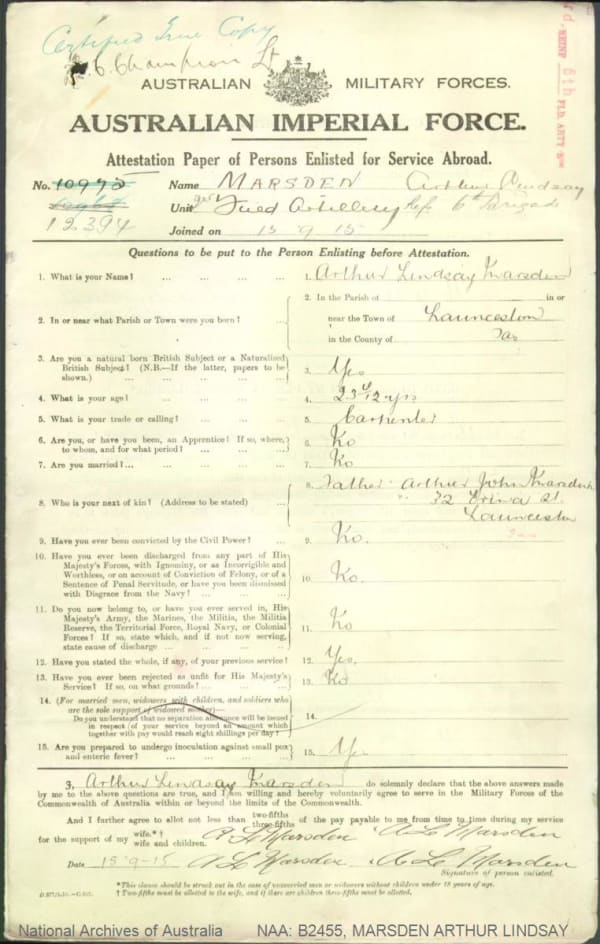 Certified True Copy
Champion Lt
AUSTRALIAN MILITARY FORCES.
AUSTRALIAN IMPERIAL FORCE.
Attestation Paper of Persons Enlisted for Service Abroad.
No. 10975 Name MARSDEN Arthur Lindsay
12394 Unit Field Artillery Refs 6th Brigade
Joined on 15 9 15
Questions to be put to the Person Enlisting before Attestation.
1. What is your Name? ... ... ... ... 1. Arthur Lindsay Marsden
2. In or near what Parish or Town were you born? ... 2. In the Parish of in or
near the Town of Launceston
in the County of Tas
3. Are you a natural born British Subject or a Naturalized
British Subject? (N.B.—If the latter, papers to be
shown.) ... ... ... ... ... 3. Yes
4. What is your age? ... ... ... ... 4. 23 4/12 yrs
5. What is your trade or calling? ... ... ... 5. Carpenter
6. Are you, or have you been, an Apprentice? If so, where,
to whom, and for what period? ... ... ... 6. No
7. Are you married?... ... ... ... ... 7. No
8. Who is your next of kin? (Address to be stated) ... 8. Father Arthur John Marsden
" 32 Erina St.
Launceston
Tas
9. Have you ever been convicted by the Civil Power? ... 9. No.
10. Have you ever been discharged from any part of His
Majesty's Forces, with Ignominy, or as Incorrigible and
Worthless, or on account of Conviction of Felony, or of a
Sentence of Penal Servitude, or have you been dismissed
with Disgrace from the Navy? ... ... ... 10. No.
11. Do you now belong to, or have you ever served in, His
Majesty's Army, the Marines, the Militia, the Militia
Reserve, the Territorial Force, Royal Navy, or Colonial
Forces? If so, state which, and if not now serving,
state cause of discharge ... ... ... ... 11. No
12. Have you stated the whole, if any, of your previous service? 12. Yes.
13. Have you ever been rejected as unfit for His Majesty's
Service? If so, on what grounds? ... ... ... 13. No
14. (For married men, widowers with children, and soldiers who
are the sole support of widowed mother)—
Do you understand that no separation allowance will be issued
in respect of your service beyond an amount which
together with pay would reach eight shillings per day? 14.
15. Are you prepared to undergo inoculation against small pox
and enteric fever? ... ... ... ... 15. Yes
3, Arthur Lindsay Marsden do solemnly declare that the above answers made
by me to the above questions are true, and I am willing and hereby voluntarily agree to serve in the Military Forces of the
Commonwealth of Australia within or beyond the limits of the Commonwealth.
And I further agree to allot not less than two-fifths three-fifths of the pay payable to me from time to time during my service
for the support of my wife.*† wife and children. A L Marsden A L Marsden
Date 15-9-15 A L Marsden A L Marsden
Signature of person enlisted.
*This clause should be struck out in the case of unmarried men or widowers without children under 18 years of age.
† Two-fifths must be allotted to the wife, and if there are children three-fifths must be allotted.
National Archives of Australia NAA: B2455, MARSDEN ARTHUR LINDSAY